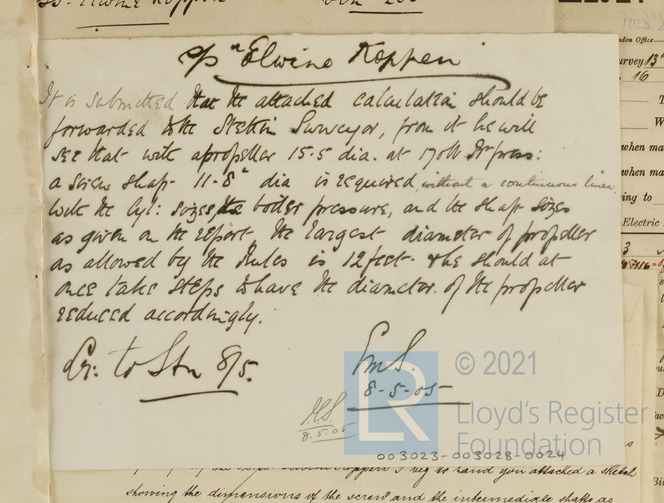 S/S "Elwine Koppen"
It is submitted that the attached calculation should be
forwarded to the Stettin Surveyor, from it he will
see that with a propeller 15.5 dia. at 170 lb Wr press:
a screw shaft 11-8" dia is required, without a continuous liner
With the cyl: sizes, the boiler pressure, and the shaft sizes
as given on the report the largest diameter of propeller
as allowed by the Rules is 12 feet & he should at
once take steps to have the diameter of the propeller
reduced accordingly.
Lr: to Stn 8/5.
8-5-05
8.5.05
LR
© 2021
Lloyd's Register
Foundation
003023-003028-0024
you attached a sketch
showing the dimensions of the screw and the intermediate shafts as
Office
urvey 13
16
when ma
when ma
ing to
Electric
3